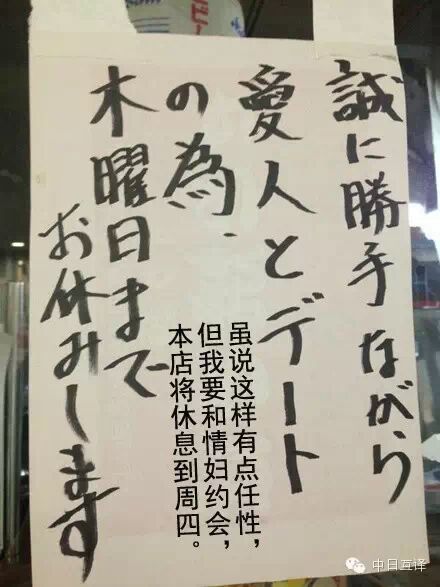 誠に勝手ながら
愛人とデート
の為、
木曜日まで
お休みします
虽说这样有点任性，
但我要和情妇约会，
本店将休息到周四。
中日互译